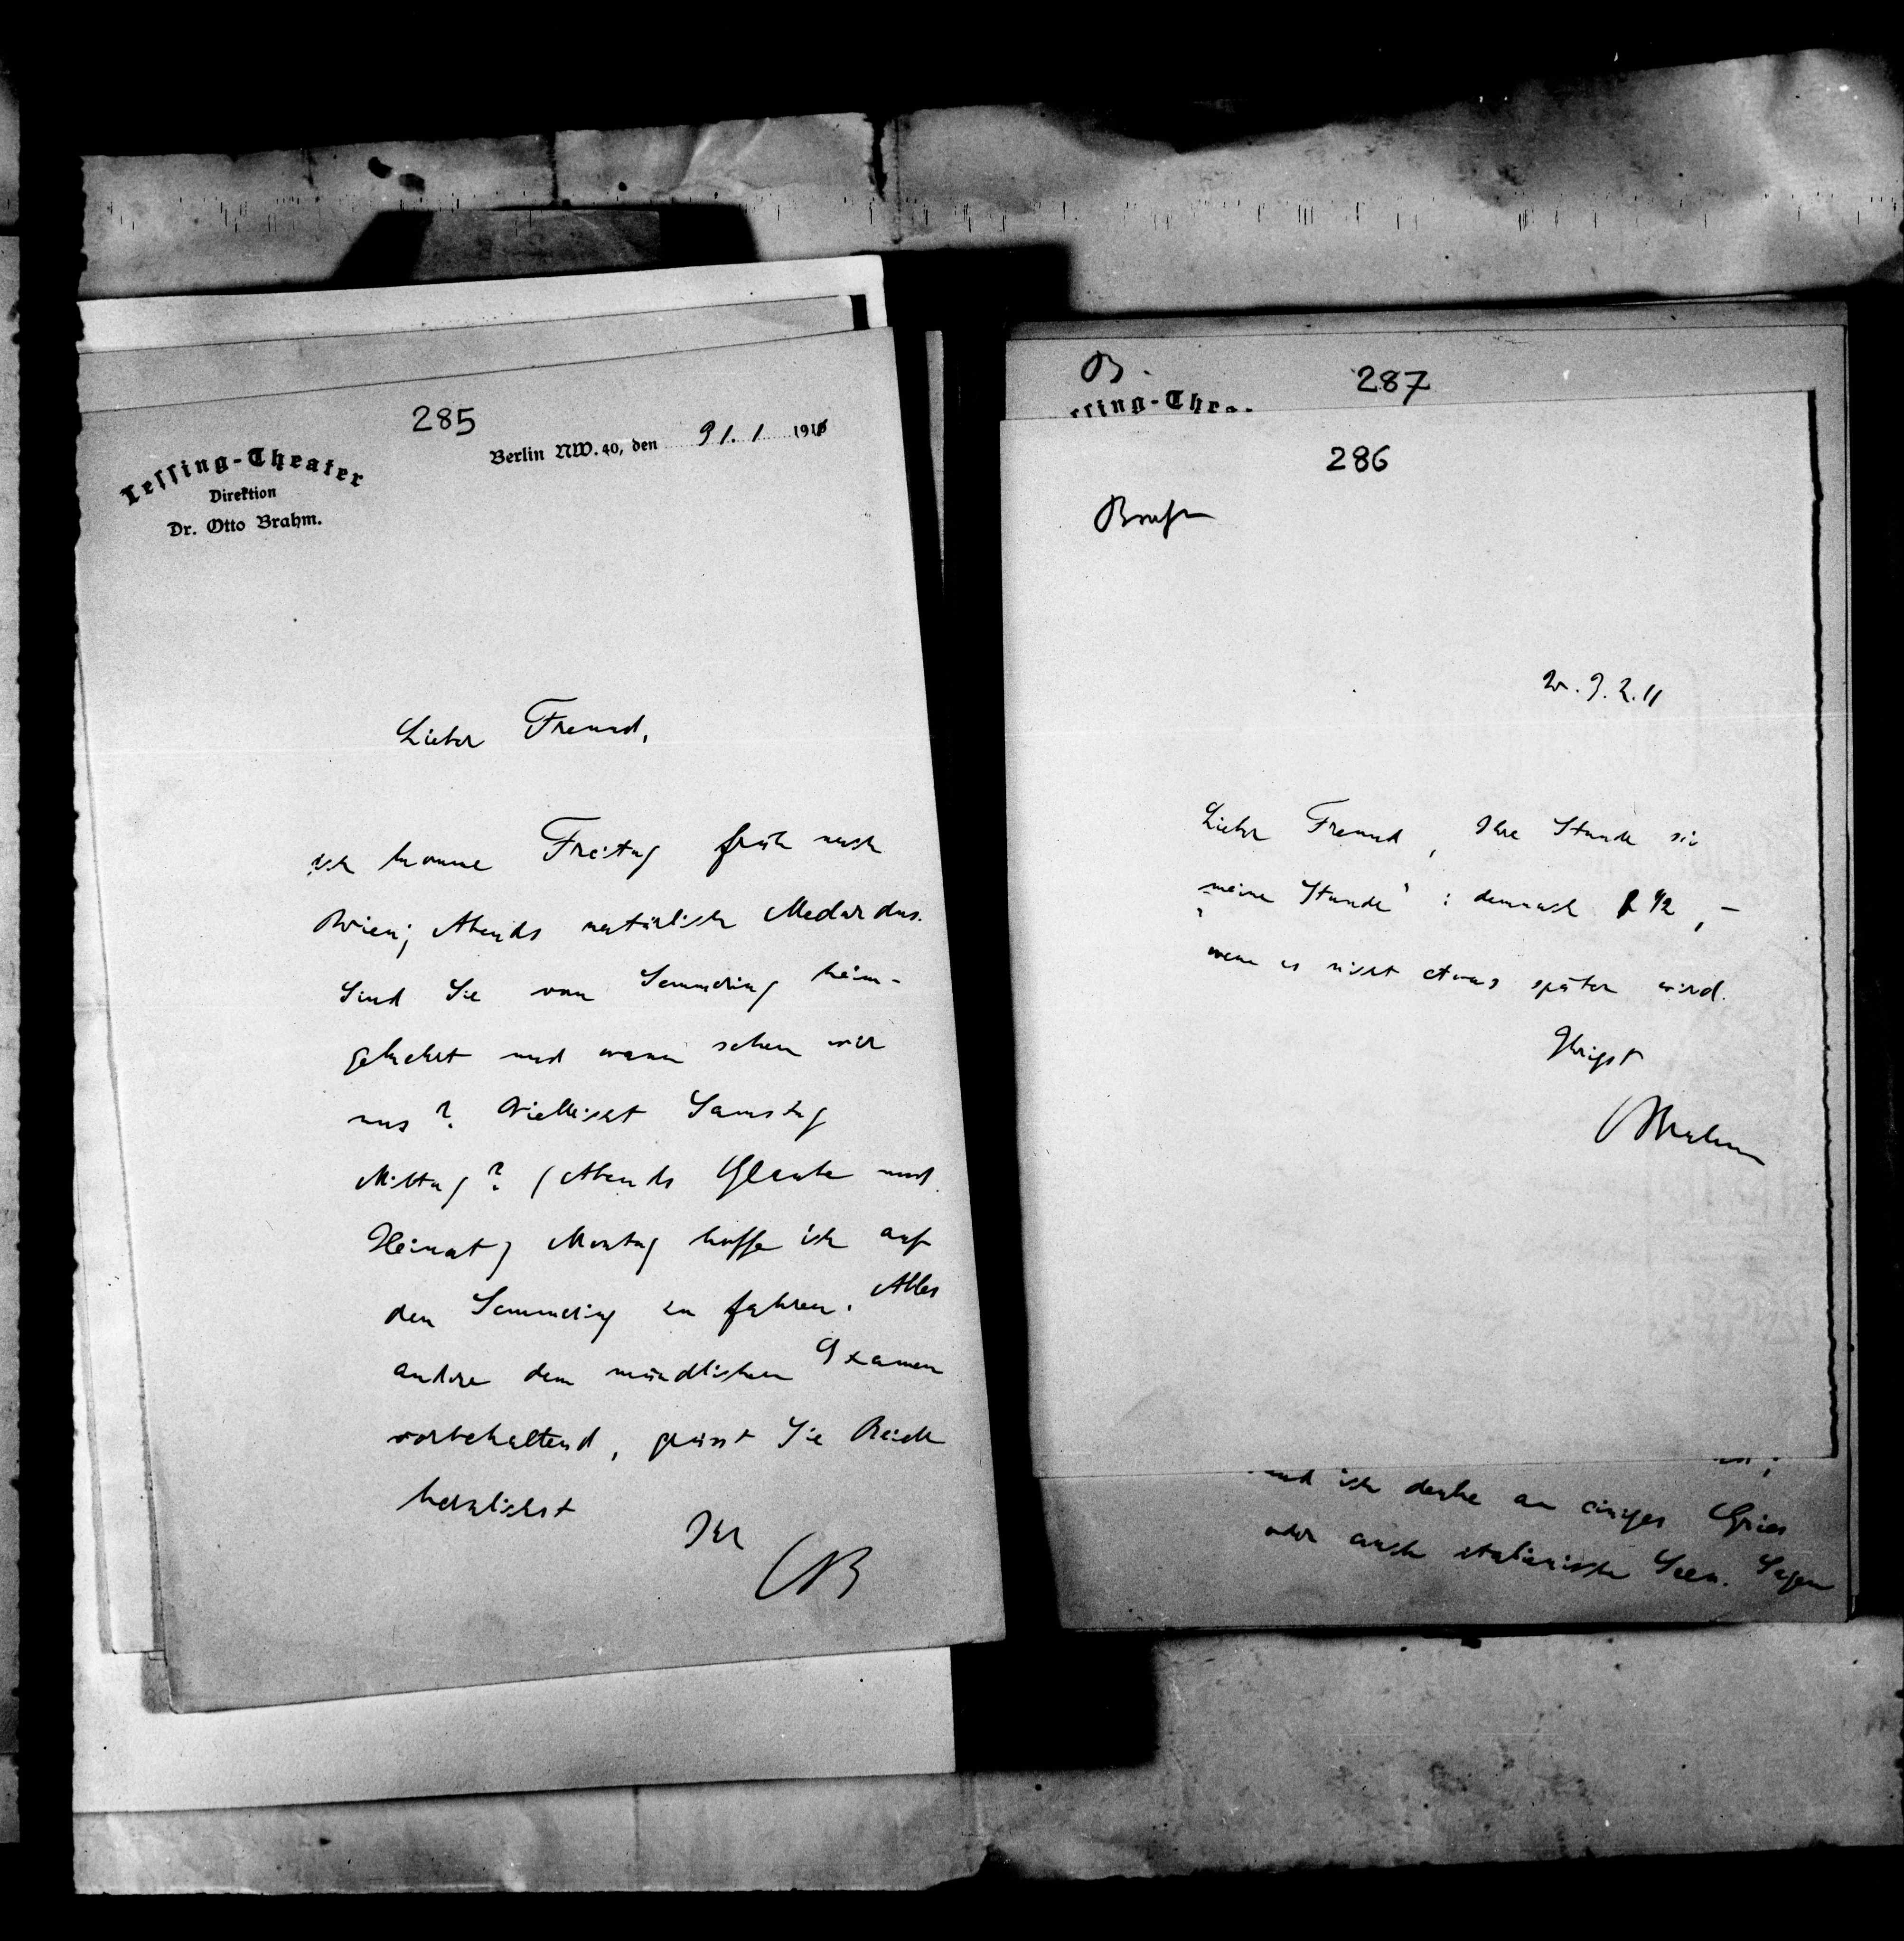 285
Lessing-Theater
Direktion
Dr. Otto Brahm.
Berlin NW. 40, den 31. 1 1911
Lieber Freund,
ich komme Freitag früh nach
Wien; Abends natürlich Medardus.
Sind Sie vom Semmering heim-
gekehrt und wann sehen wir
uns? Vielleicht Samstag
Mittag? (Abends Glaube und
Heimat) Montag hoffe ich auf
den Semmering zu fahren. Alles
andere dem mündlichen Examen
vorbehaltend, grüsst Sie Beide
herzlichst
Ihr
OB
B.
287
ssing-Thea
286
Brahm
W. 9. 2. 11
Lieber Freund, Ihre Stunde sei
"meine Stunde": demnach 1/2, –
wenn es nicht etwas später wird.
Ihrigst
OBrahm
und ich denke an einiges Gries
oder auch italienische Seen. Sagen